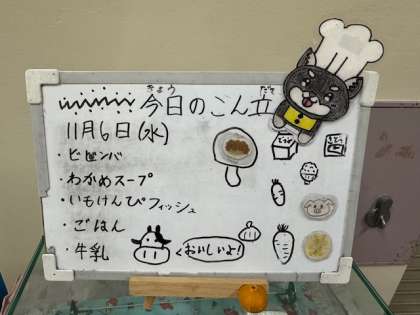 きょう だて
今日のこん立
11月6日(水)
・ビビンバ
・わかめスープ
・いもけんぴフィッシュ
・ごはん
・牛乳
おいしいよ!